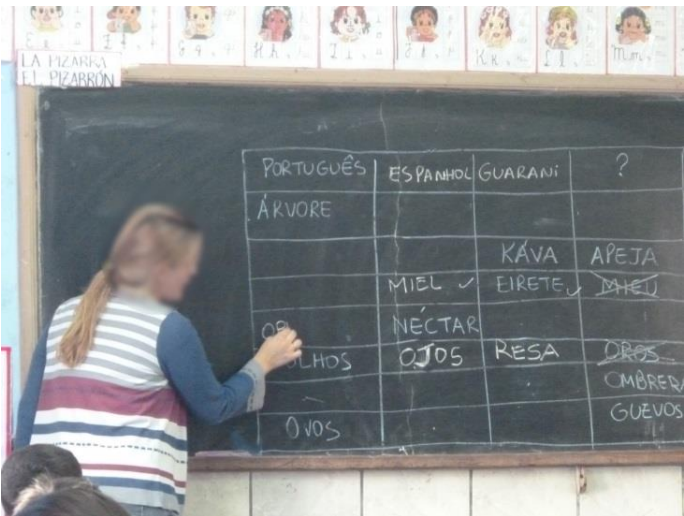 LA PIZARRA
EL PIZARRÓN
PORTUGUÊS ESPANHOL GUARANI ?
ÁRVORE
KÁVA APEJA
MIEL ✓ EIRETE ✓ MIEU
NÉCTAR
OLHOS OJOS RESA OROS
OMBRERA
OVOS GUEVOS